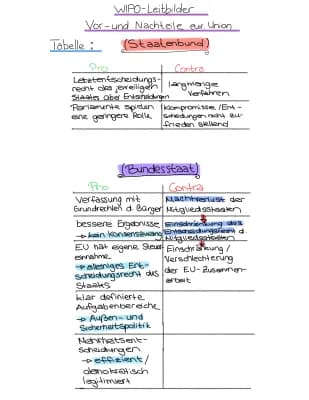 WIPO-Leitbilder
Vor- und Nachteile zur Union
Tabelle : (Staatenbund)
Pro Contra
Letztentscheidungs-
recht des jeweiligen
Staates über Entscheidungen
langwierige
Verfahren
Parlamente spielen
eine geringere Rolle
Kompromisse /Ent-
scheidungen nicht zu-
frieden stellend
(Bundesstaat)
Pro Contra
Verfassung mit
Grundrechten d. Bürger
Machtverlust der
Mitgliedsstaaten
bessere Ergebnisse
→ kein Konsenszwang
Einschränkung des
Entscheidungsrecht d.
Mitgliedsstaaten
EU hat eigene Steuer
einnahme
→ alleiniges Ent-
scheidungsrecht des
Staates
Einschränkung /
Verschlechterung
der EU-Zusammen-
arbeit
klar definierte
Aufgabenbereiche
→ Außen- und
Sicherheitspolitik
Mehrheitsent-
scheidungen
→ effizient /
demokratisch
legitimiert